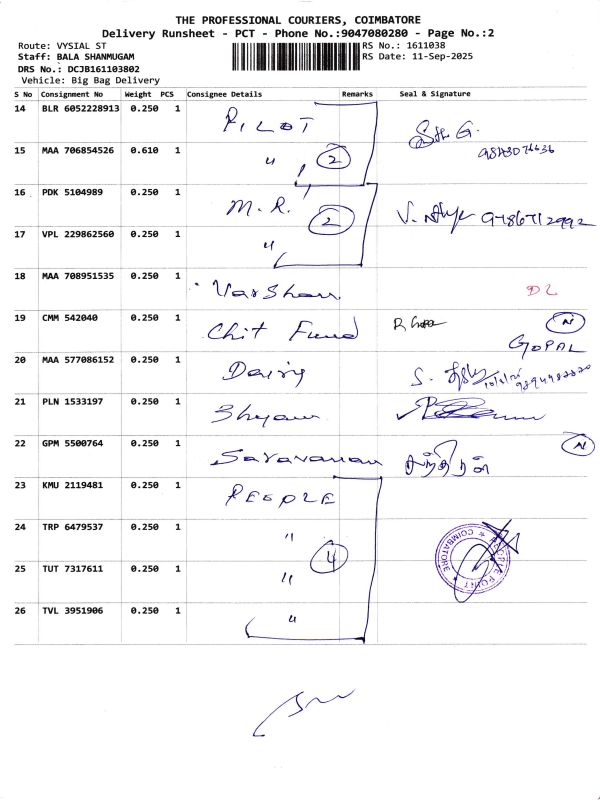 THE PROFESSIONAL COURIERS, COIMBATORE
Delivery Runsheet - PCT - Phone No.:9047080280 - Page No.:2
Route: VYSIAL ST
RS No.: 1611038
Staff: BALA SHANMUGAM
RS Date: 11-Sep-2025
DRS No.: DCJB161103802
Vehicle: Big Bag Delivery
S No Consignment No Weight PCS Consignee Details Remarks Seal & Signature
14 BLR 6052228913 0.250 1 PILOT
15 MAA 706854526 0.610 1 " 2
16 PDK 5104989 0.250 1 M.R. 2 9786712992
17 VPL 229862560 0.250 1 "
18 MAA 708951535 0.250 1 Varshan DL
19 CMM 542040 0.250 1 Chit Fund N
GOPAL
20 MAA 577086152 0.250 1 S.
21 PLN 1533197 0.250 1 Shyam
22 GPM 5500764 0.250 1 Saravanan N
23 KMU 2119481 0.250 1 PEOPLE
24 TRP 6479537 0.250 1 " 4
COIMBATORE
25 TUT 7317611 0.250 1 "
26 TVL 3951906 0.250 1 "